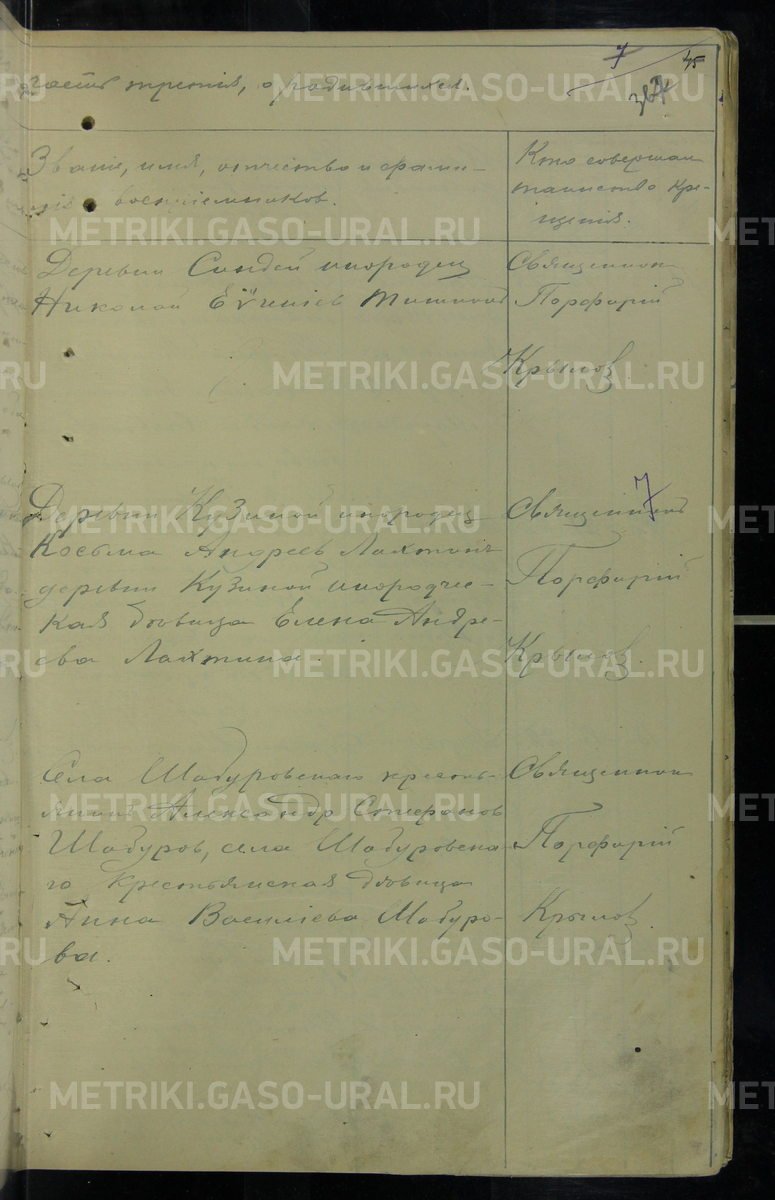 7
45
367
часть третiя, о родившихся.
Званiе, имя, отчество и фами-
лiя воспрiемников.
Кто совершал
таинство кре-
щенiя.
Деревни инородец
Николай Еѵгенiев
Священник
Порфирiй
Крылов
7
Деревни Кузиной инородец
Косьма Андреев Лахтин
деревни Кузиной инородчес-
кая девица Елена Андре-
ева Лахтина.
Священник
Порфирiй
Крылов.
Села Шабуровскаго кресть-
янин Александр Стефанов
Шабуров, села Шабуровска-
го крестьянская девица
Анна Василiева Шабуро-
ва.
Священник
Порфирiй
Крылов.
METRIKI.GASO-URAL.RU